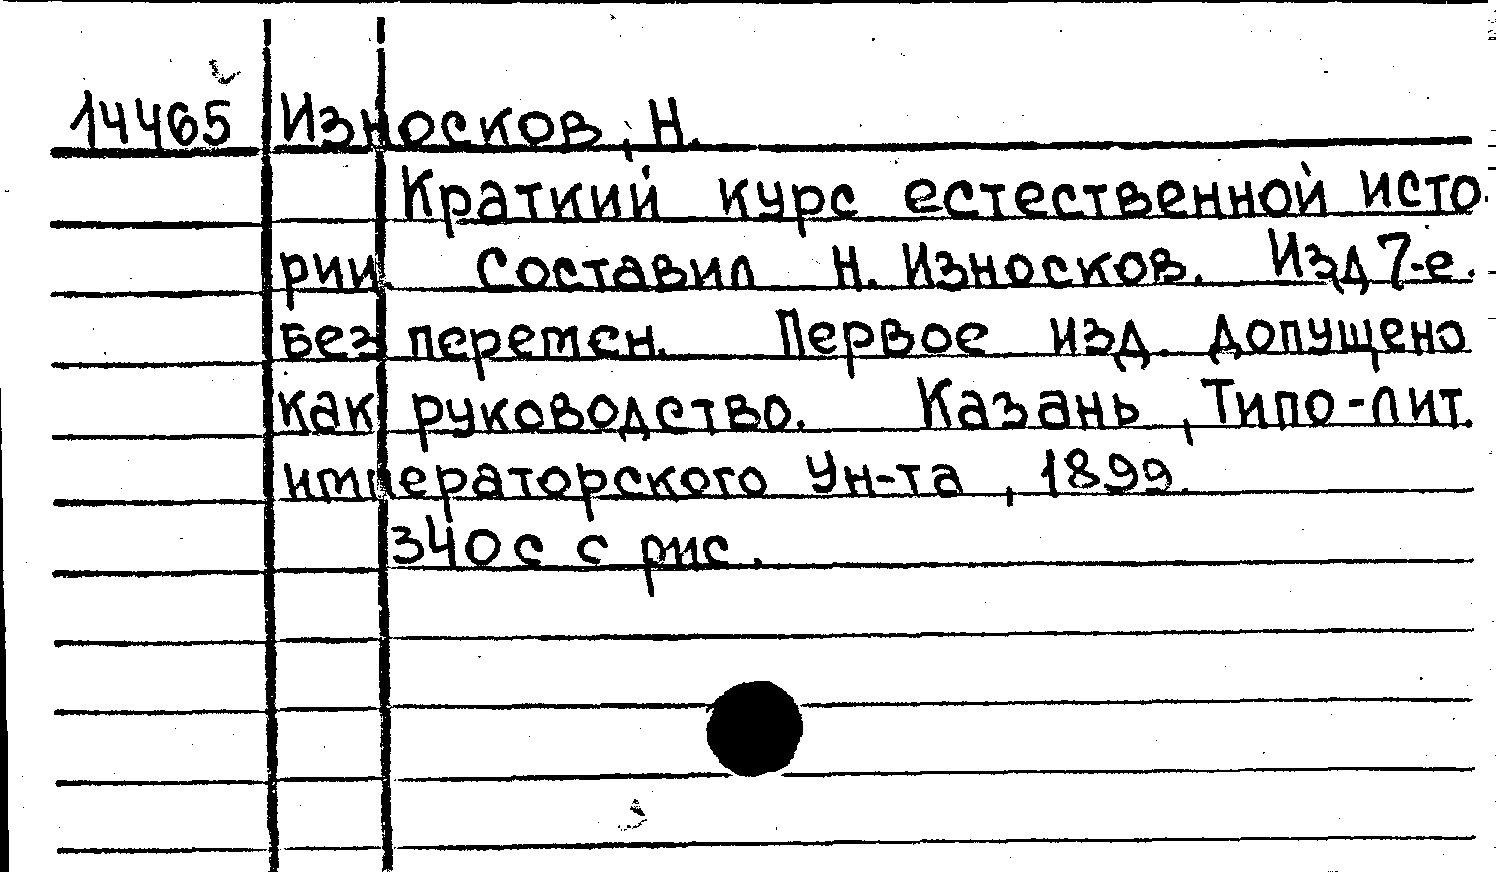 14465 Износков, Н.
Краткий курс естественной исто
рии. Составил Н. Износков. Изд 7-е.
без перемен. Первое изд. допущено
как руководство. Казань, Типо-лит.
императорского Ун-та, 1899.
340 с с рис.